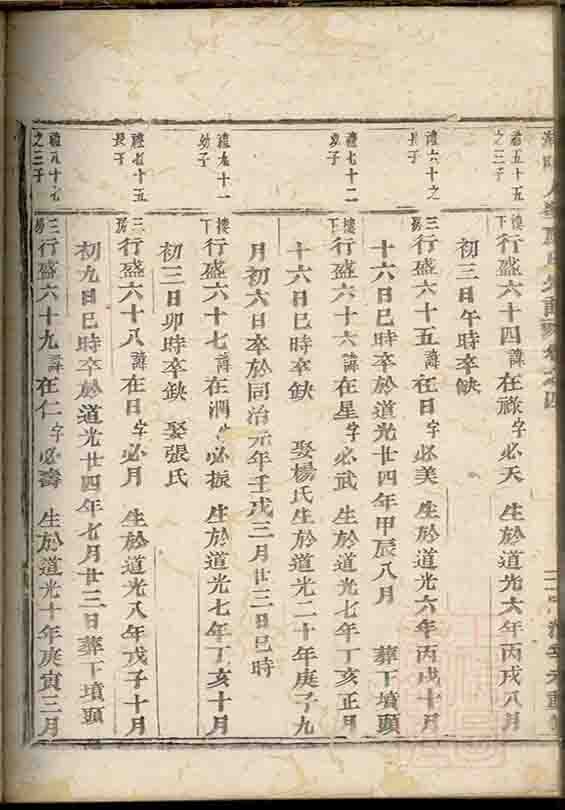 禮五十五
之三子
樓下
行盛六十四諱在祿字必天 生於道光六年丙戌八月
初三日午時卒缺
禮六十之
長子
三房
行盛六十五諱在日字必美 生於道光六年丙戌十月
十六日巳時卒於道光廿四年甲辰八月 葬下墳頭
禮七十二
長子
樓下
行盛六十六諱在星字必武 生於道光七年丁亥正月
十六日巳時卒缺 娶楊氏生於道光二十年庚子九
月初六日卒於同治元年壬戌三月廿三日巳時
禮九十一
幼子
樓下
行盛六十七諱在潤字必振 生於道光七年丁亥十月
初三日卯時卒缺 娶張氏
禮七十五
長子
三房
行盛六十八諱在日字必月 生於道光八年戊子十月
初九日巳時卒於道光廿四年七月廿三日葬下墳頭
禮八十七
之三子
三房
行盛六十九諱在仁字必濤 生於道光十年庚寅三月